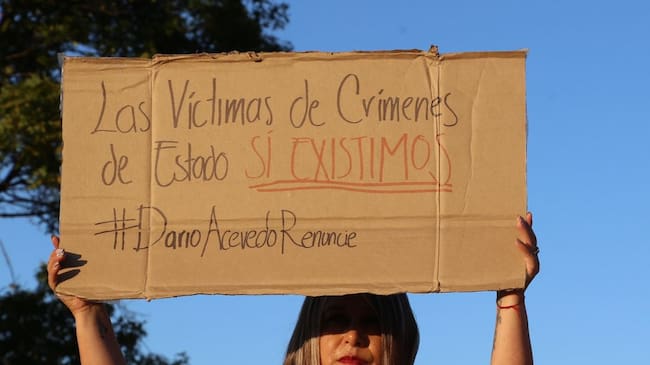 Las Víctimas de Crímenes
de Estado SÍ EXISTIMOS
#DarioAcevedoRenuncie